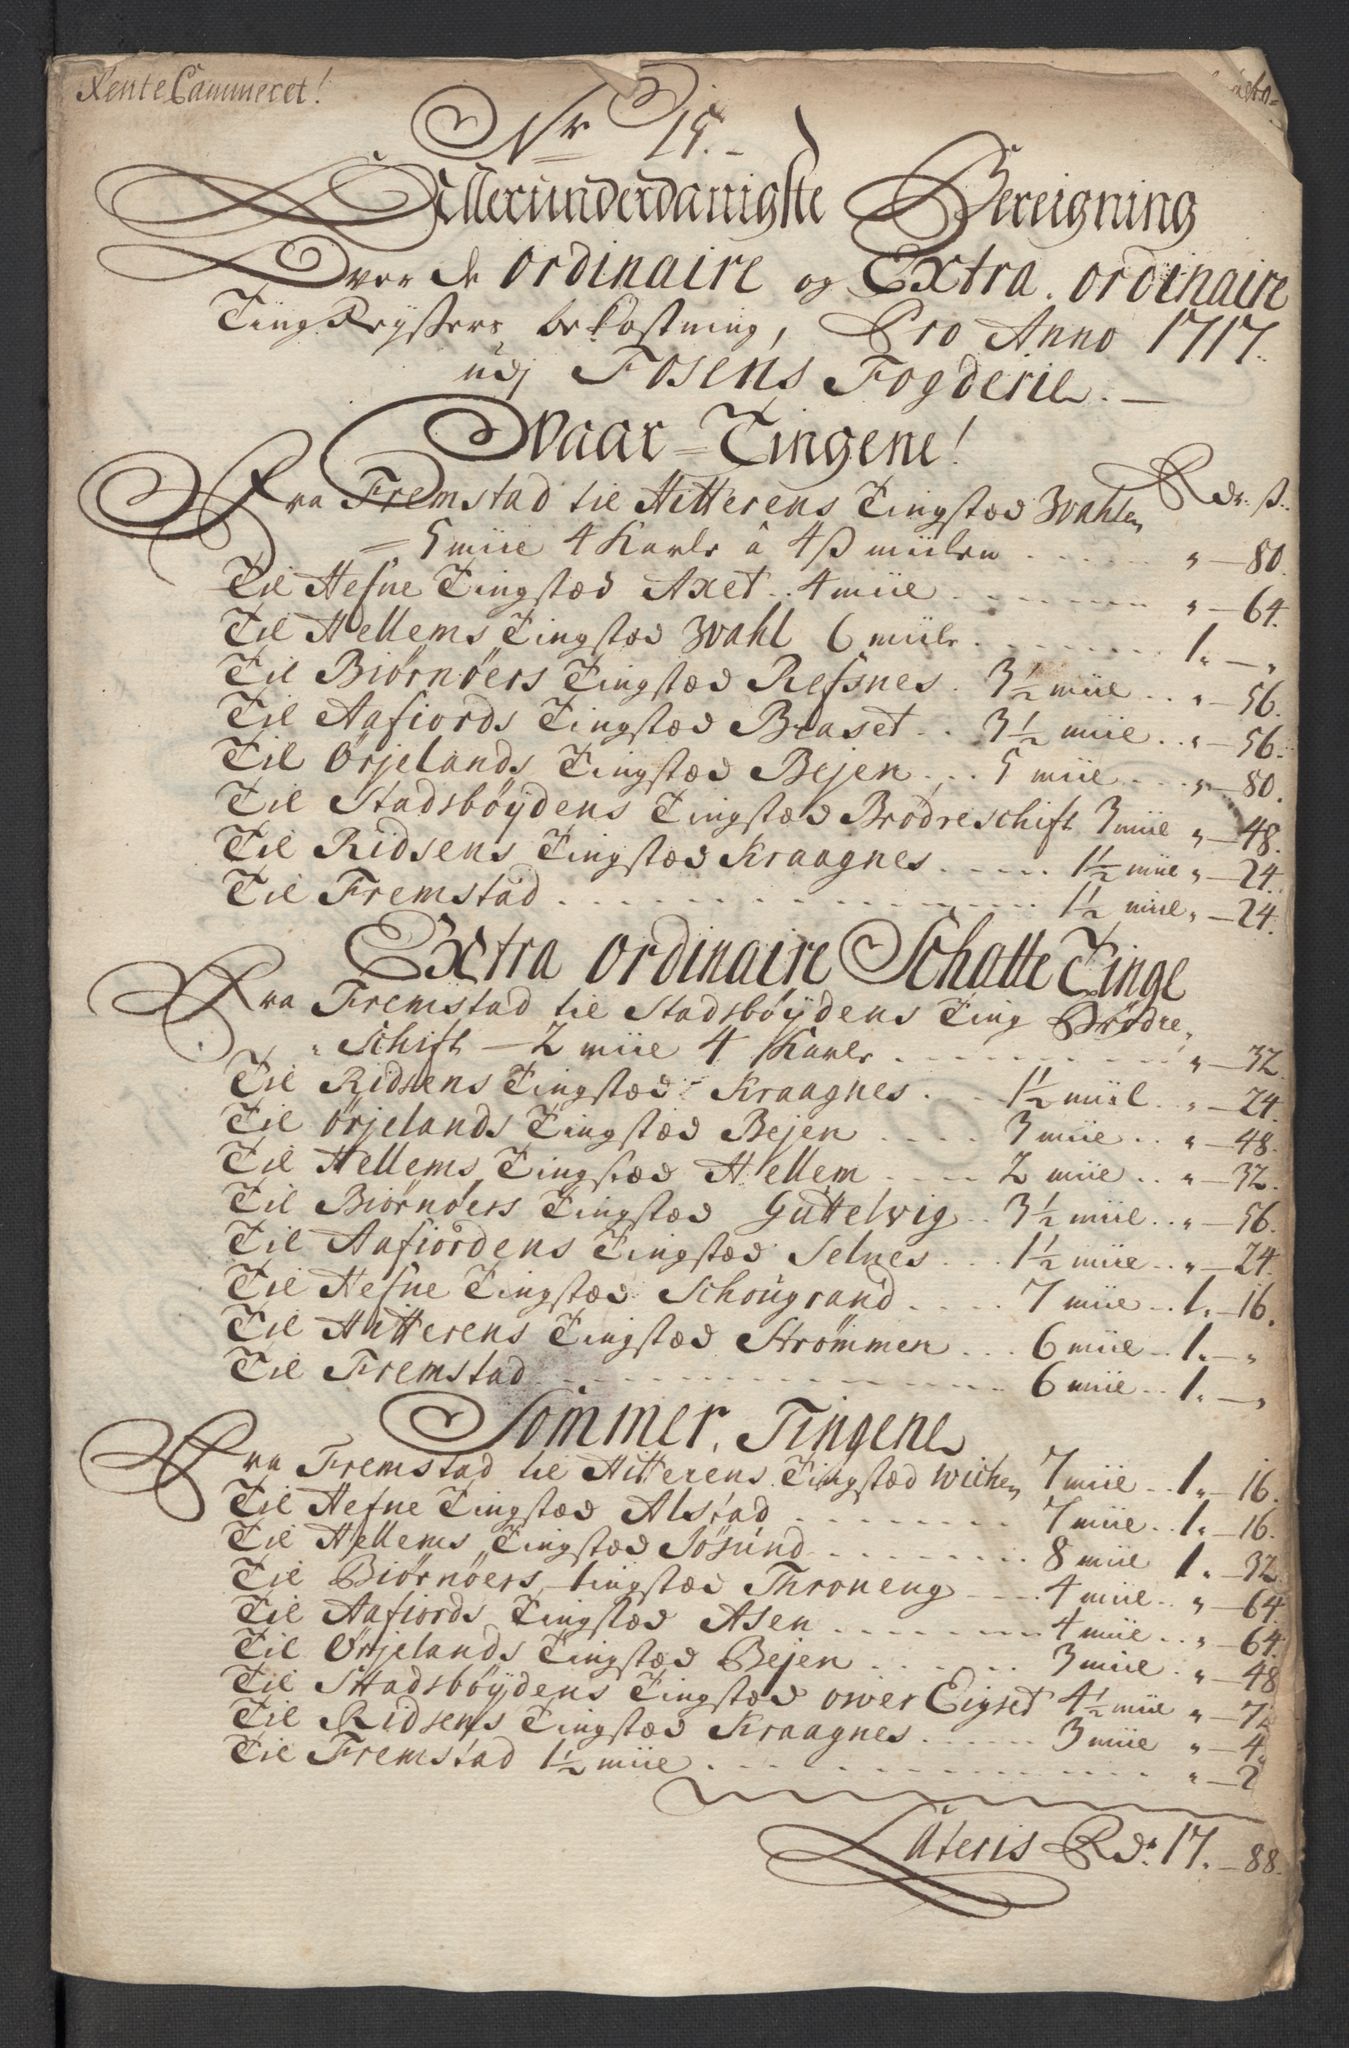 Rente Cammeret!
Nr 15.
Allerunderdanigste Bereigning
Over de ordinaire og Extra. ordinaire
Ting Reyssers bekostning, Pro Anno 1717.
udj Fosens Fogderie.
Vaar-Tingene!
Rdr. ß.
Fra Fremstad til Hitterens Tingstæd Wahlen
5 miile 4 Karle â 4ß miilen „ — 80.
Til Hefne Tingstæd Axet 4 miil „ — 64.
Til Hellems Tingstæd Wahl 6 miile 1. — „
Til Biørnøers Tingstæd Refsnes. 3½ miil „ — 56.
Til Aafiords Tingstæd Braset 3½ miil „ — 56.
Til Ørjelands Tingstæd Bejen 5 miil „ — 80.
Til Stadsbøydens Tingstæd Brødreschift 3 miil „ — 48.
Til Ridsens Tingstæd Kraagnes 1½ miil „ — 24.
Til Fremstad 1½ miil „ — 24.
Extra ordinaire Schatte Tinge
Fra Fremstad til Stadsbøydens Ting Brødre-
Schift — 2 miil 4 Karle „ — 32.
Til Ridsens Tingstæd Kraagnes 1½ miil „ — 24.
Til Ørjelands Tingstæd Bejen 3 miil „ — 48.
Til Hellems Tingstæd Hellem 2 miil „ — 32.
Til Biørnøers Tingstæd Guttelvig 3½ miil „ — 56.
Til Aafiordens Tingstæd Selnes 1½ miil „ — 24.
Til Hefne Tingstæd Schougrand 7 miil 1. — 16.
Til Hitterens Tingstæd Strømmen 6 miil 1. — „
Til Fremstad 6 miil 1. — „
Sommer. Tingene
Fra Fremstad til Hitterens Tingstæd Wichen 7 miil 1. — 16.
Til Hefne Tingstæd Alstad 7 miil 1. — 16.
Til Hellems Tingstæd Jøsund 8 miil 1. — 32
Til Biørnøers tingstæd Throneng 4 miil „ — 64
Til Aafiords Tingstæd Asen 4 miil „ — 64.
Til Ørjelands Tingstæd Bejen 3 miil „ — 48
Til Stadsbøydens Tingstæd over Eigset 4½ miil „ — 72
Til Ridsens Tingstæd Kraagnes 3 miil „ — 4
Til Fremstad 1½ miil „ — 2
Lateris Rdr. 17. — 88.